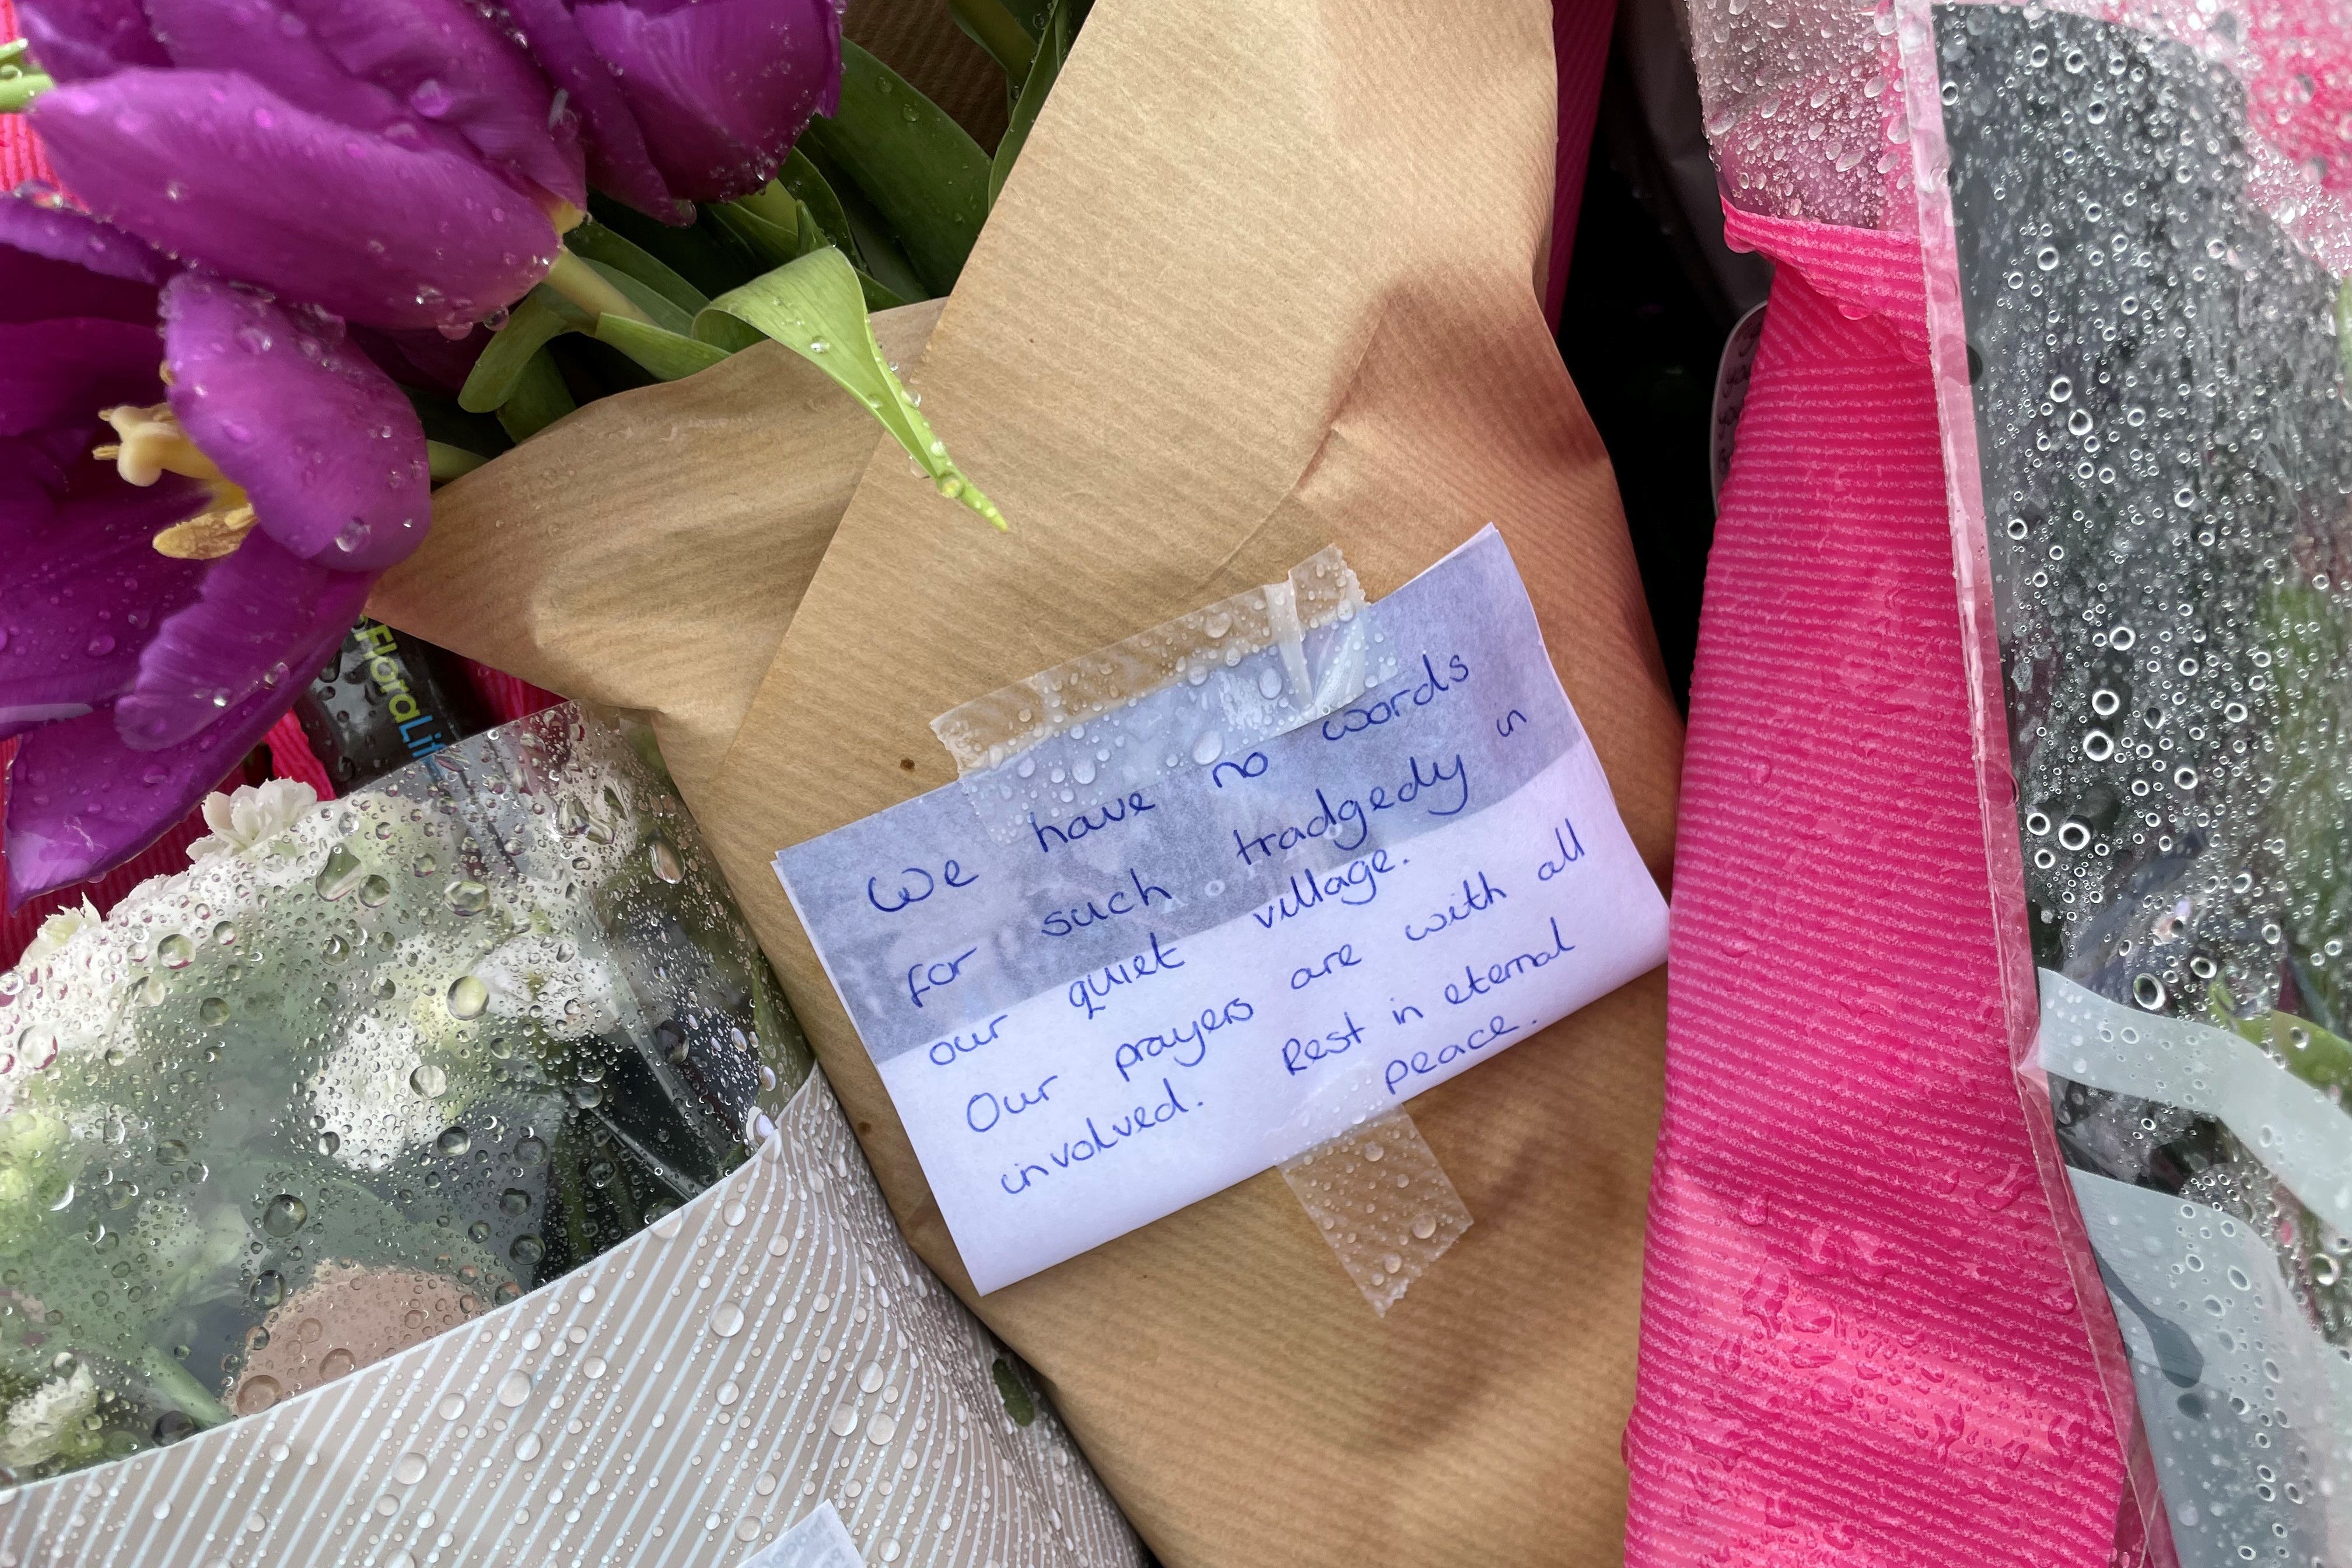 We have no words
for such tradgedy in
our quiet village.
Our prayers are with all
involved. Rest in eternal
peace.
FloraLif